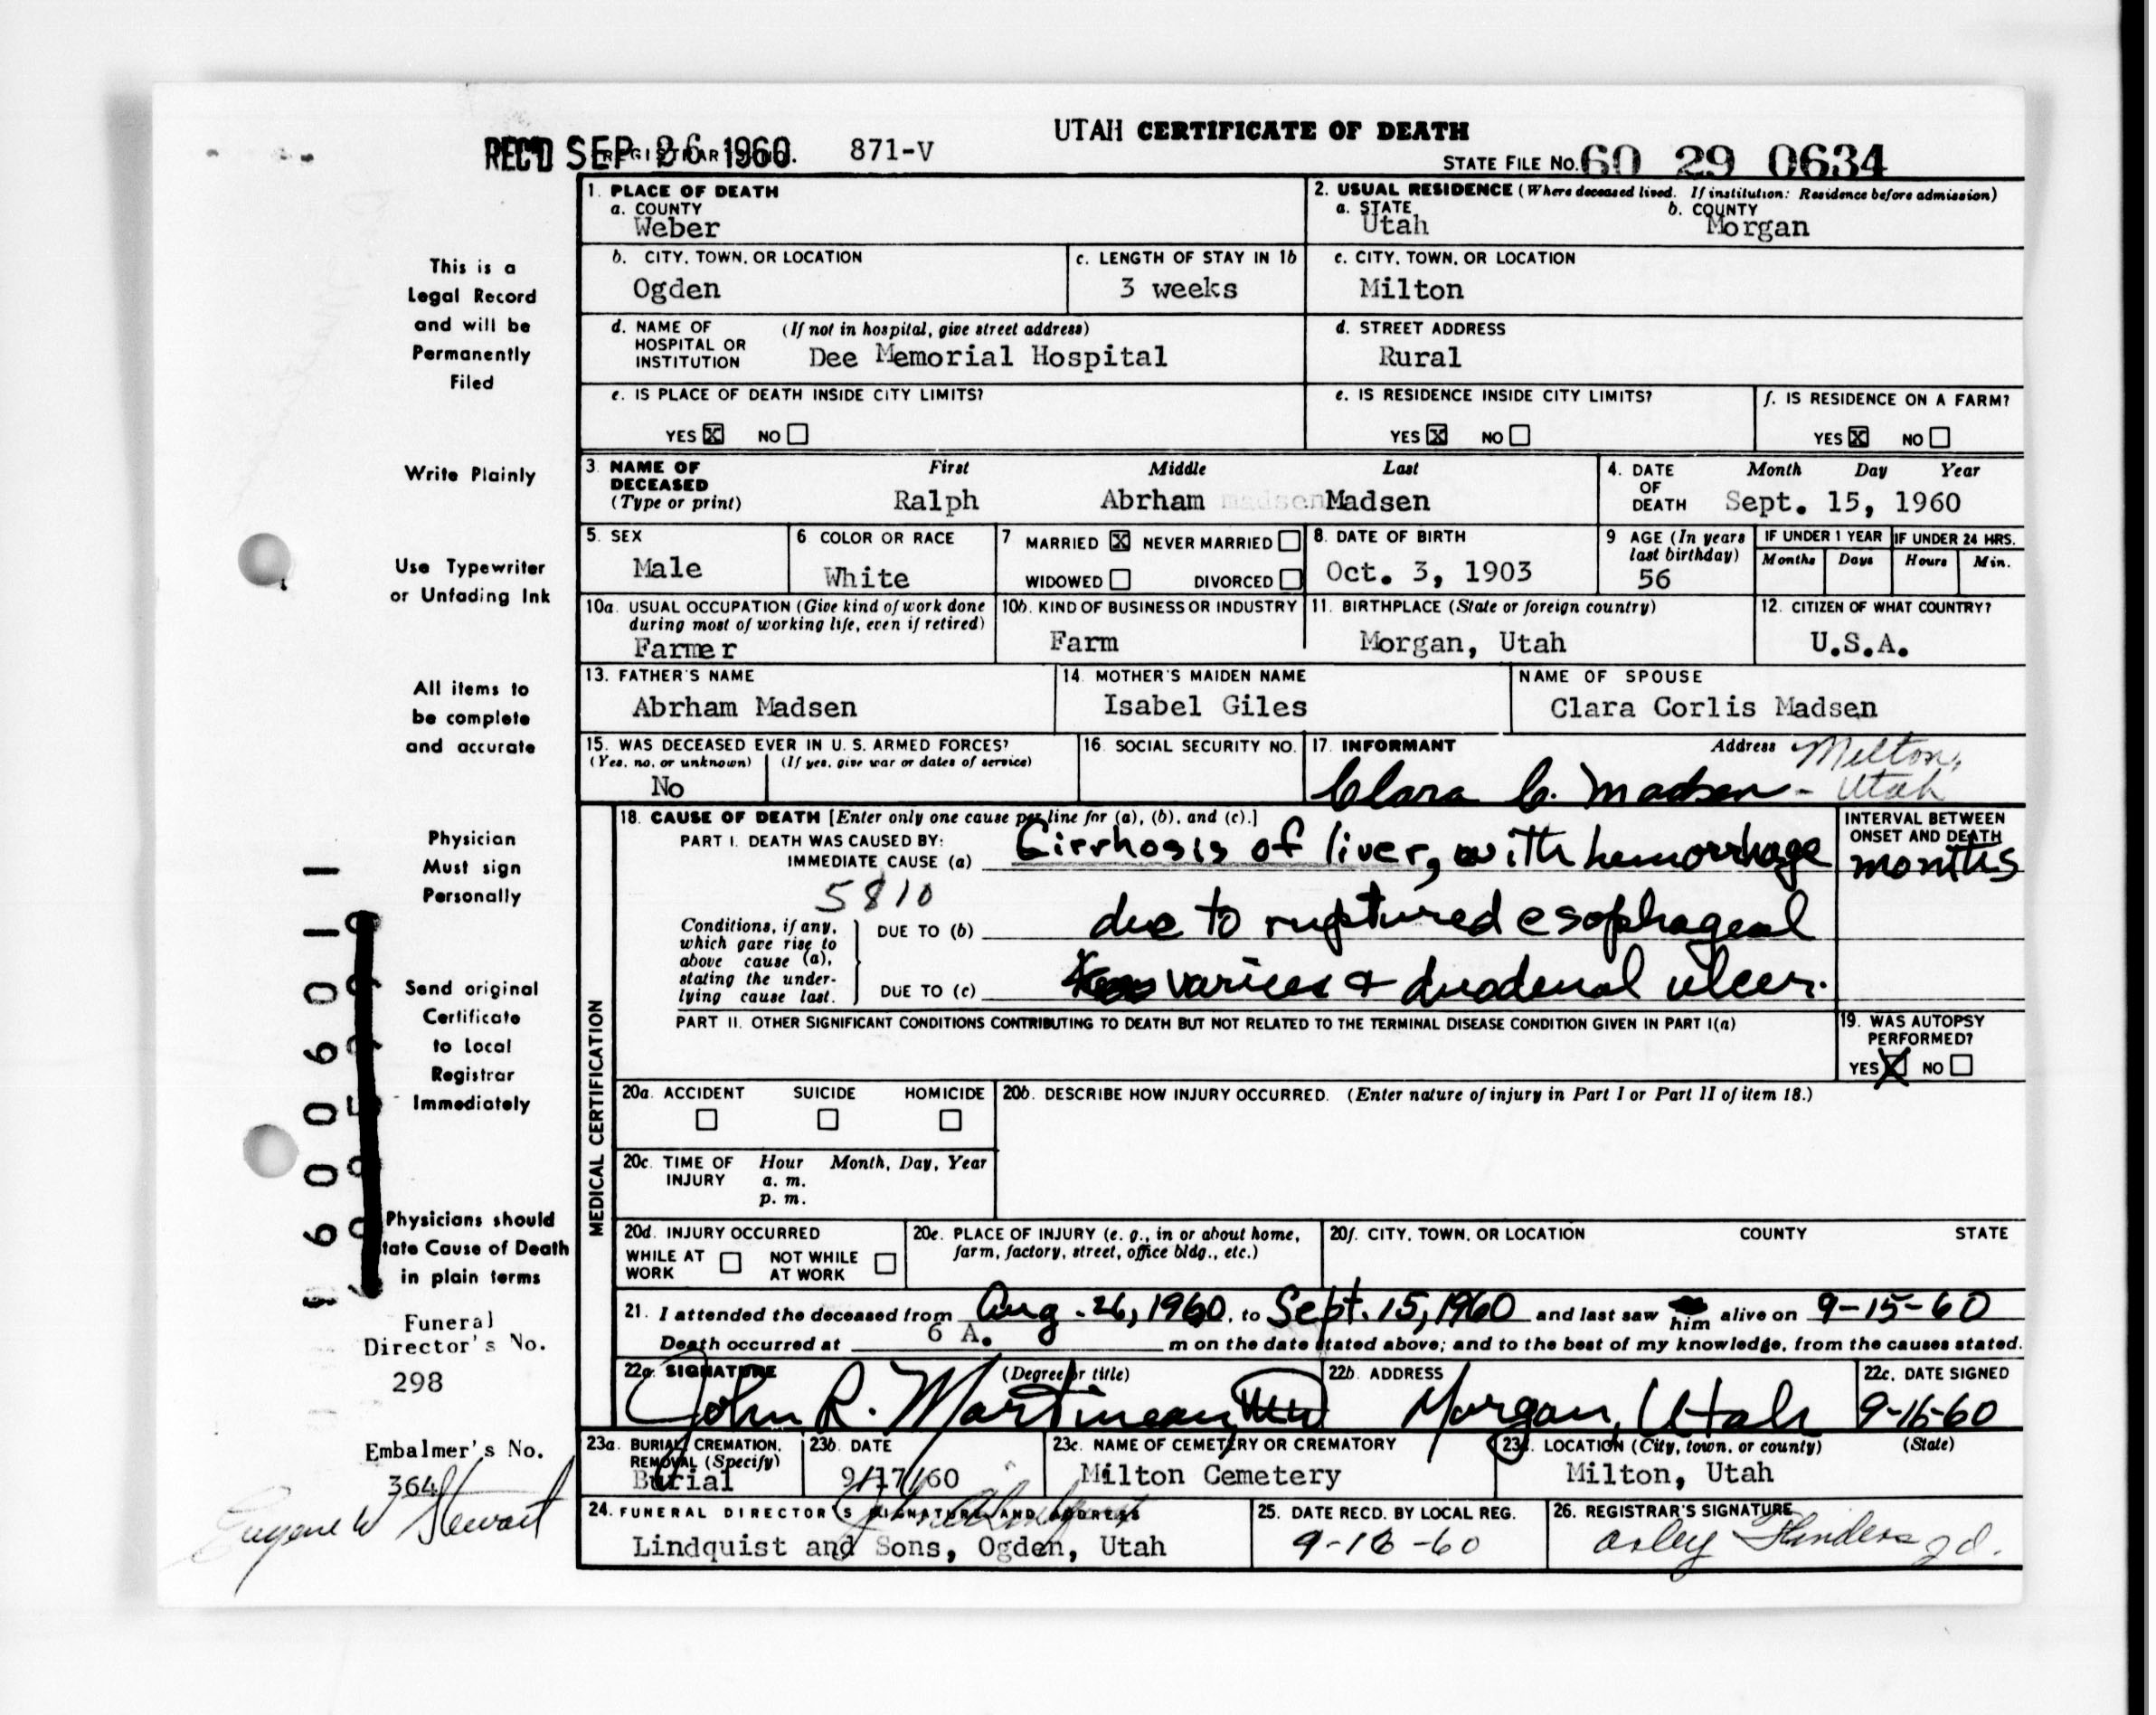 UTAH CERTIFICATE OF DEATH
REC'D SEP 26 1960 871-V
STATE FILE NO. 60 29 0634
1. PLACE OF DEATH
a. COUNTY
Weber
2. USUAL RESIDENCE (Where deceased lived. If institution: Residence before admission)
a. STATE b. COUNTY
Utah Morgan
b. CITY, TOWN, OR LOCATION
Ogden
c. LENGTH OF STAY IN 1b
3 weeks
c. CITY, TOWN, OR LOCATION
Milton
d. NAME OF HOSPITAL OR INSTITUTION (If not in hospital, give street address)
Dee Memorial Hospital
d. STREET ADDRESS
Rural
e. IS PLACE OF DEATH INSIDE CITY LIMITS?
YES X NO
e. IS RESIDENCE INSIDE CITY LIMITS?
YES X NO
f. IS RESIDENCE ON A FARM?
YES X NO
3. NAME OF DECEASED (Type or print)
First Middle Last
Ralph Abrham madsen Madsen
4. DATE OF DEATH Month Day Year
Sept. 15, 1960
5. SEX
Male
6 COLOR OR RACE
White
7 MARRIED X NEVER MARRIED
WIDOWED DIVORCED
8. DATE OF BIRTH
Oct. 3, 1903
9 AGE (In years last birthday)
56
IF UNDER 1 YEAR IF UNDER 24 HRS.
Months Days Hours Min.
10a. USUAL OCCUPATION (Give kind of work done during most of working life, even if retired)
Farmer
10b. KIND OF BUSINESS OR INDUSTRY
Farm
11. BIRTHPLACE (State or foreign country)
Morgan, Utah
12. CITIZEN OF WHAT COUNTRY?
U.S.A.
13. FATHER'S NAME
Abrham Madsen
14. MOTHER'S MAIDEN NAME
Isabel Giles
NAME OF SPOUSE
Clara Corlis Madsen
15. WAS DECEASED EVER IN U. S. ARMED FORCES?
(Yes, no, or unknown) (If yes, give war or dates of service)
No
16. SOCIAL SECURITY NO.
17. INFORMANT Address
Clara C. Madsen - Milton, Utah
MEDICAL CERTIFICATION
18. CAUSE OF DEATH [Enter only one cause per line for (a), (b), and (c).]
PART I. DEATH WAS CAUSED BY:
IMMEDIATE CAUSE (a) Cirrhosis of liver, with hemorrhage
5810
Conditions, if any, which gave rise to above cause (a), stating the underlying cause last.
DUE TO (b) due to ruptured esophageal
DUE TO (c) varices & duodenal ulcer.
INTERVAL BETWEEN ONSET AND DEATH
months
PART II. OTHER SIGNIFICANT CONDITIONS CONTRIBUTING TO DEATH BUT NOT RELATED TO THE TERMINAL DISEASE CONDITION GIVEN IN PART I(a)
19. WAS AUTOPSY PERFORMED?
YES X NO
20a. ACCIDENT SUICIDE HOMICIDE
20b. DESCRIBE HOW INJURY OCCURRED. (Enter nature of injury in Part I or Part II of item 18.)
20c. TIME OF INJURY Hour Month, Day, Year
a. m.
p. m.
20d. INJURY OCCURRED
WHILE AT WORK NOT WHILE AT WORK
20e. PLACE OF INJURY (e. g., in or about home, farm, factory, street, office bldg., etc.)
20f. CITY, TOWN, OR LOCATION COUNTY STATE
21. I attended the deceased from Aug. 26, 1960, to Sept. 15, 1960 and last saw him alive on 9-15-60
Death occurred at 6 A. m on the date stated above; and to the best of my knowledge, from the causes stated.
22a. SIGNATURE (Degree or title)
John R. Martineau
22b. ADDRESS
Morgan, Utah
22c. DATE SIGNED
9-16-60
23a. BURIAL, CREMATION, REMOVAL (Specify)
Burial
23b. DATE
9/17/60
23c. NAME OF CEMETERY OR CREMATORY
Milton Cemetery
23d. LOCATION (City, town, or county) (State)
Milton, Utah
24. FUNERAL DIRECTOR'S SIGNATURE AND ADDRESS
Lindquist and Sons, Ogden, Utah
25. DATE RECD. BY LOCAL REG.
9-16-60
26. REGISTRAR'S SIGNATURE
This is a
Legal Record
and will be
Permanently
Filed
Write Plainly
Use Typewriter
or Unfading Ink
All items to
be complete
and accurate
Physician
Must sign
Personally
Send original
Certificate
to Local
Registrar
Immediately
Physicians should
state Cause of Death
in plain terms
Funeral
Director's No.
298
Embalmer's No.
364
Eugene W Stewart